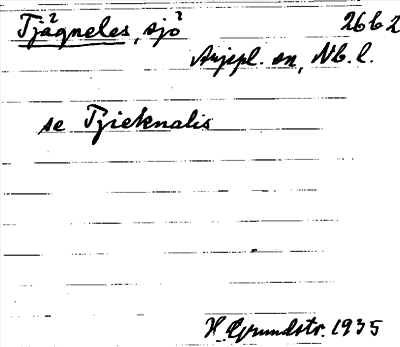 Tjäqneles, sjö 26 b 2
Arjepl. sn, Nb. l.
se Tjieknalis
H. Grundstr. 1935